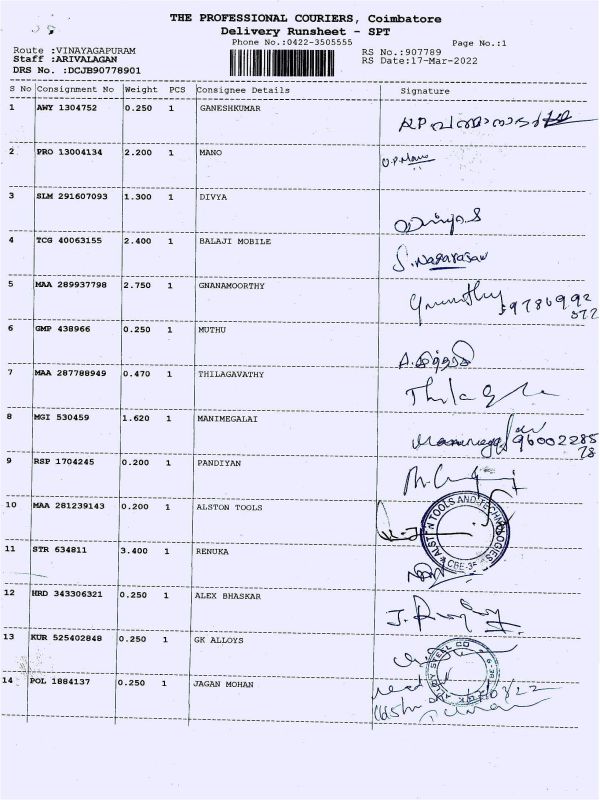 THE PROFESSIONAL COURIERS, Coimbatore
Delivery Runsheet - SPT
Phone No.:0422-3505555 Page No.:1
Route :VINAYAGAPURAM RS No.:907789
Staff :ARIVALAGAN RS Date:17-Mar-2022
DRS No. :DCJB90778901
S No Consignment No Weight PCS Consignee Details Signature
1 AWY 1304752 0.250 1 GANESHKUMAR
2 PRO 13004134 2.200 1 MANO O.P.Mano
3 SLM 291607093 1.300 1 DIVYA
4 TCG 40063155 2.400 1 BALAJI MOBILE S.Nagarasan
5 MAA 289937798 2.750 1 GNANAMOORTHY
6 GMP 438966 0.250 1 MUTHU
7 MAA 287788949 0.470 1 THILAGAVATHY
8 MGI 530459 1.620 1 MANIMEGALAI 96002285
78
9 RSP 1704245 0.200 1 PANDIYAN
10 MAA 281239143 0.200 1 ALSTON TOOLS
11 STR 634811 3.400 1 RENUKA
12 HRD 343306321 0.250 1 ALEX BHASKAR
13 KUR 525402848 0.250 1 GK ALLOYS
14 POL 1884137 0.250 1 JAGAN MOHAN